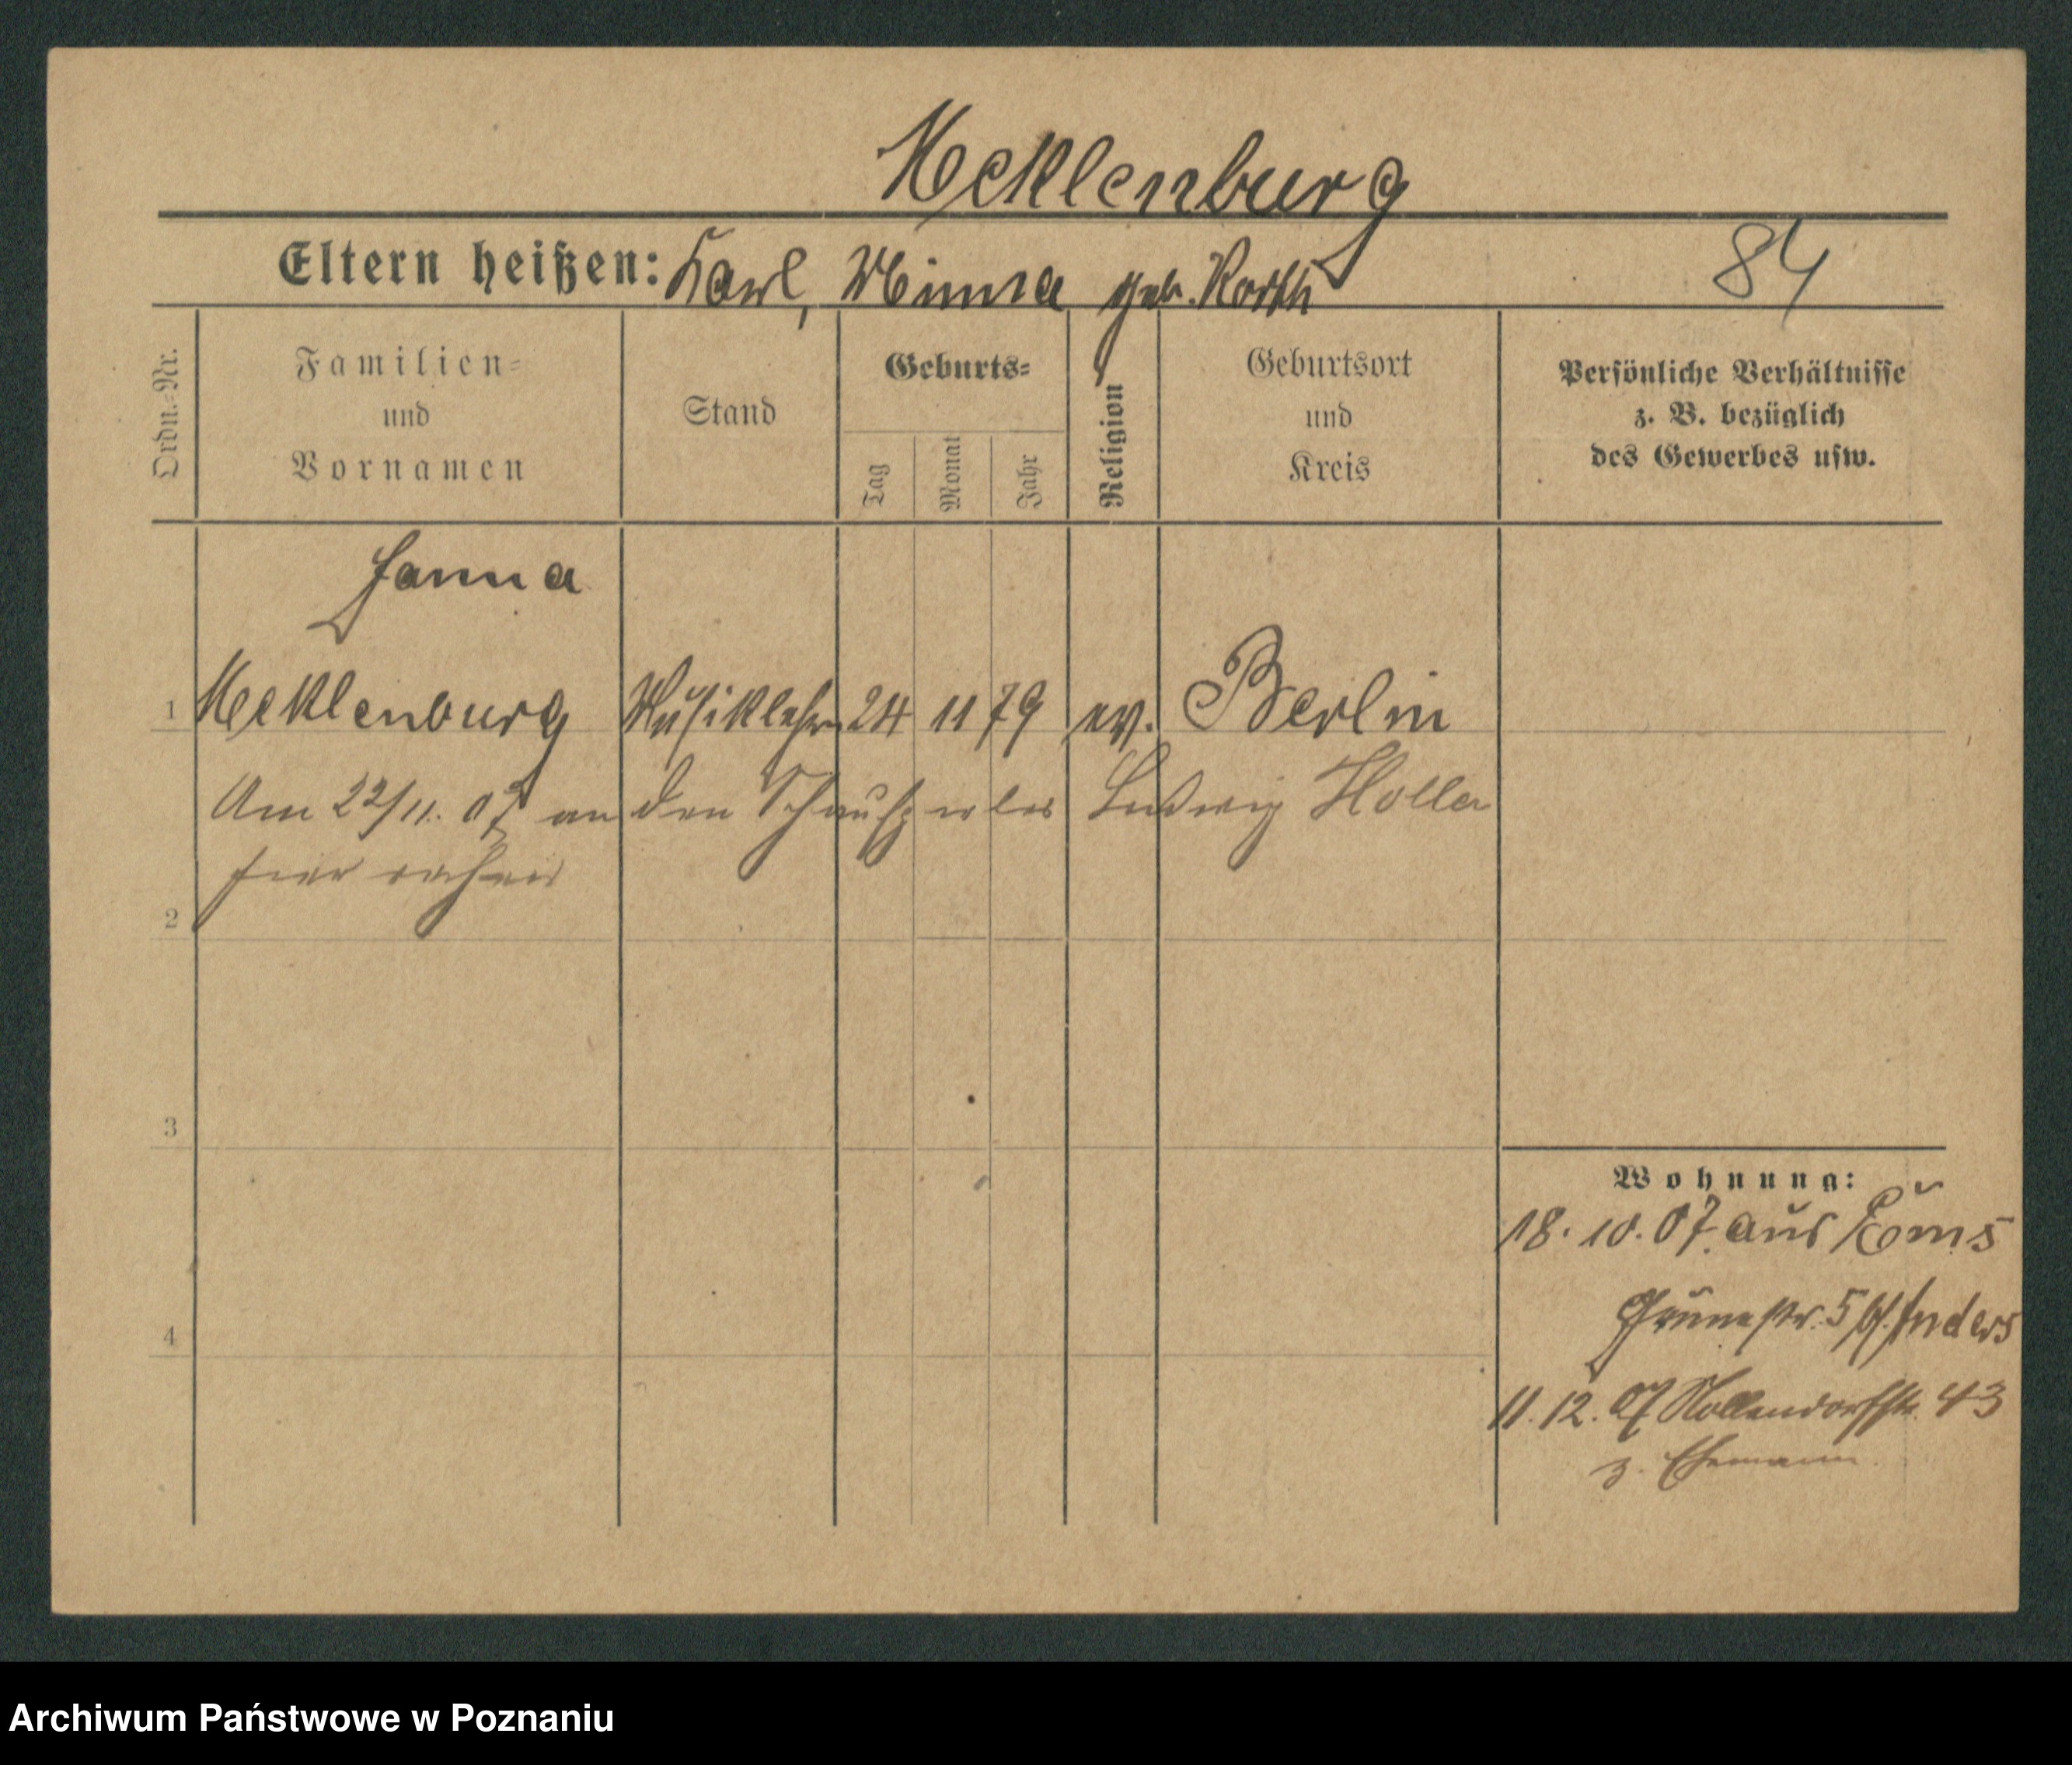 Mecklenburg
Eltern heißen: Karl, Minna geb. Korth
84
Ordn.=Nr.
Familien=
und
Vornamen
Stand
Geburts=
Tag
Monat
Jahr
Religion
Geburtsort
und
Kreis
Persönliche Verhältnisse
z. B. bezüglich
des Gewerbes usw.
1
Mecklenburg Musiklehr 24 11 79 ev. Berlin
Am 22/11. 07 an den Schauspieler Ludwig
hier
2
3
4
Wohnung:
18. 10. 07. aus Ems
Grünestr. 5 bei Enders
11. 12. 07 Nollendorfstr. 43
z. Ehemann
Archiwum Państwowe w Poznaniu